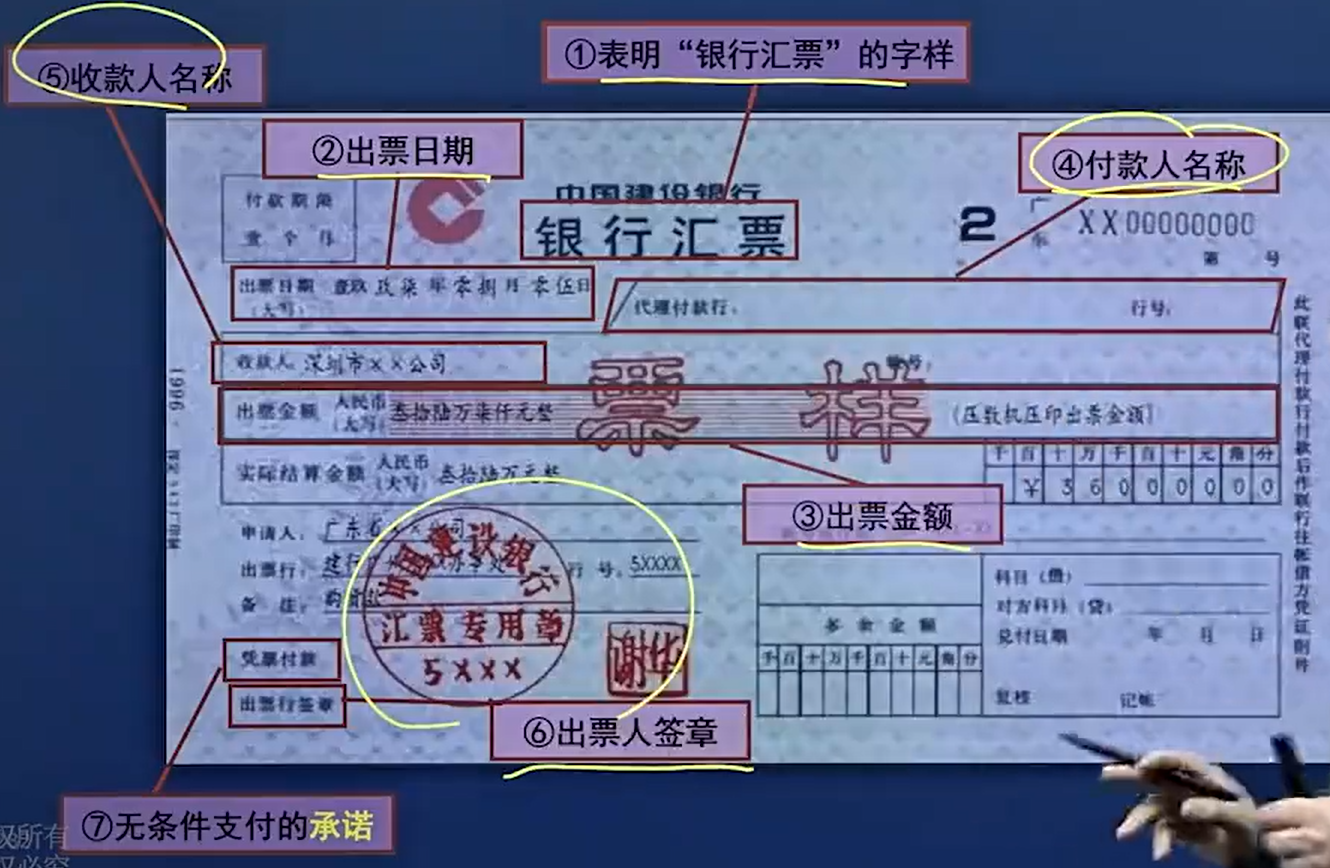 ①表明“银行汇票”的字样
⑤收款人名称
②出票日期
④付款人名称
付款期限
壹个月
中国建设银行
银行汇票
2
XX00000000
第 号
出票日期
(大写)
壹玖玖柒年零捌月零伍日
代理付款行:
行号:
收款人
深圳市××公司
票样
出票金额
人民币
(大写)
叁拾陆万柒仟元整
(压数机压印出票金额)
实际结算金额
人民币
(大写)
叁拾陆万元整
千百十万千百十元角分
¥36000000
③出票金额
申请人:
出票行:
行号:
5XXXX
备注:
中国建设银行
汇票专用章
5XXX
谢华
凭票付款
出票行签章
⑥出票人签章
多余金额
千百十万千百十元角分
科目(借)
对方科目(贷)
兑付日期 年 月 日
复核 记账
此联代理付款行付款后作联行往帐借方凭证附件
1996
⑦无条件支付的承诺